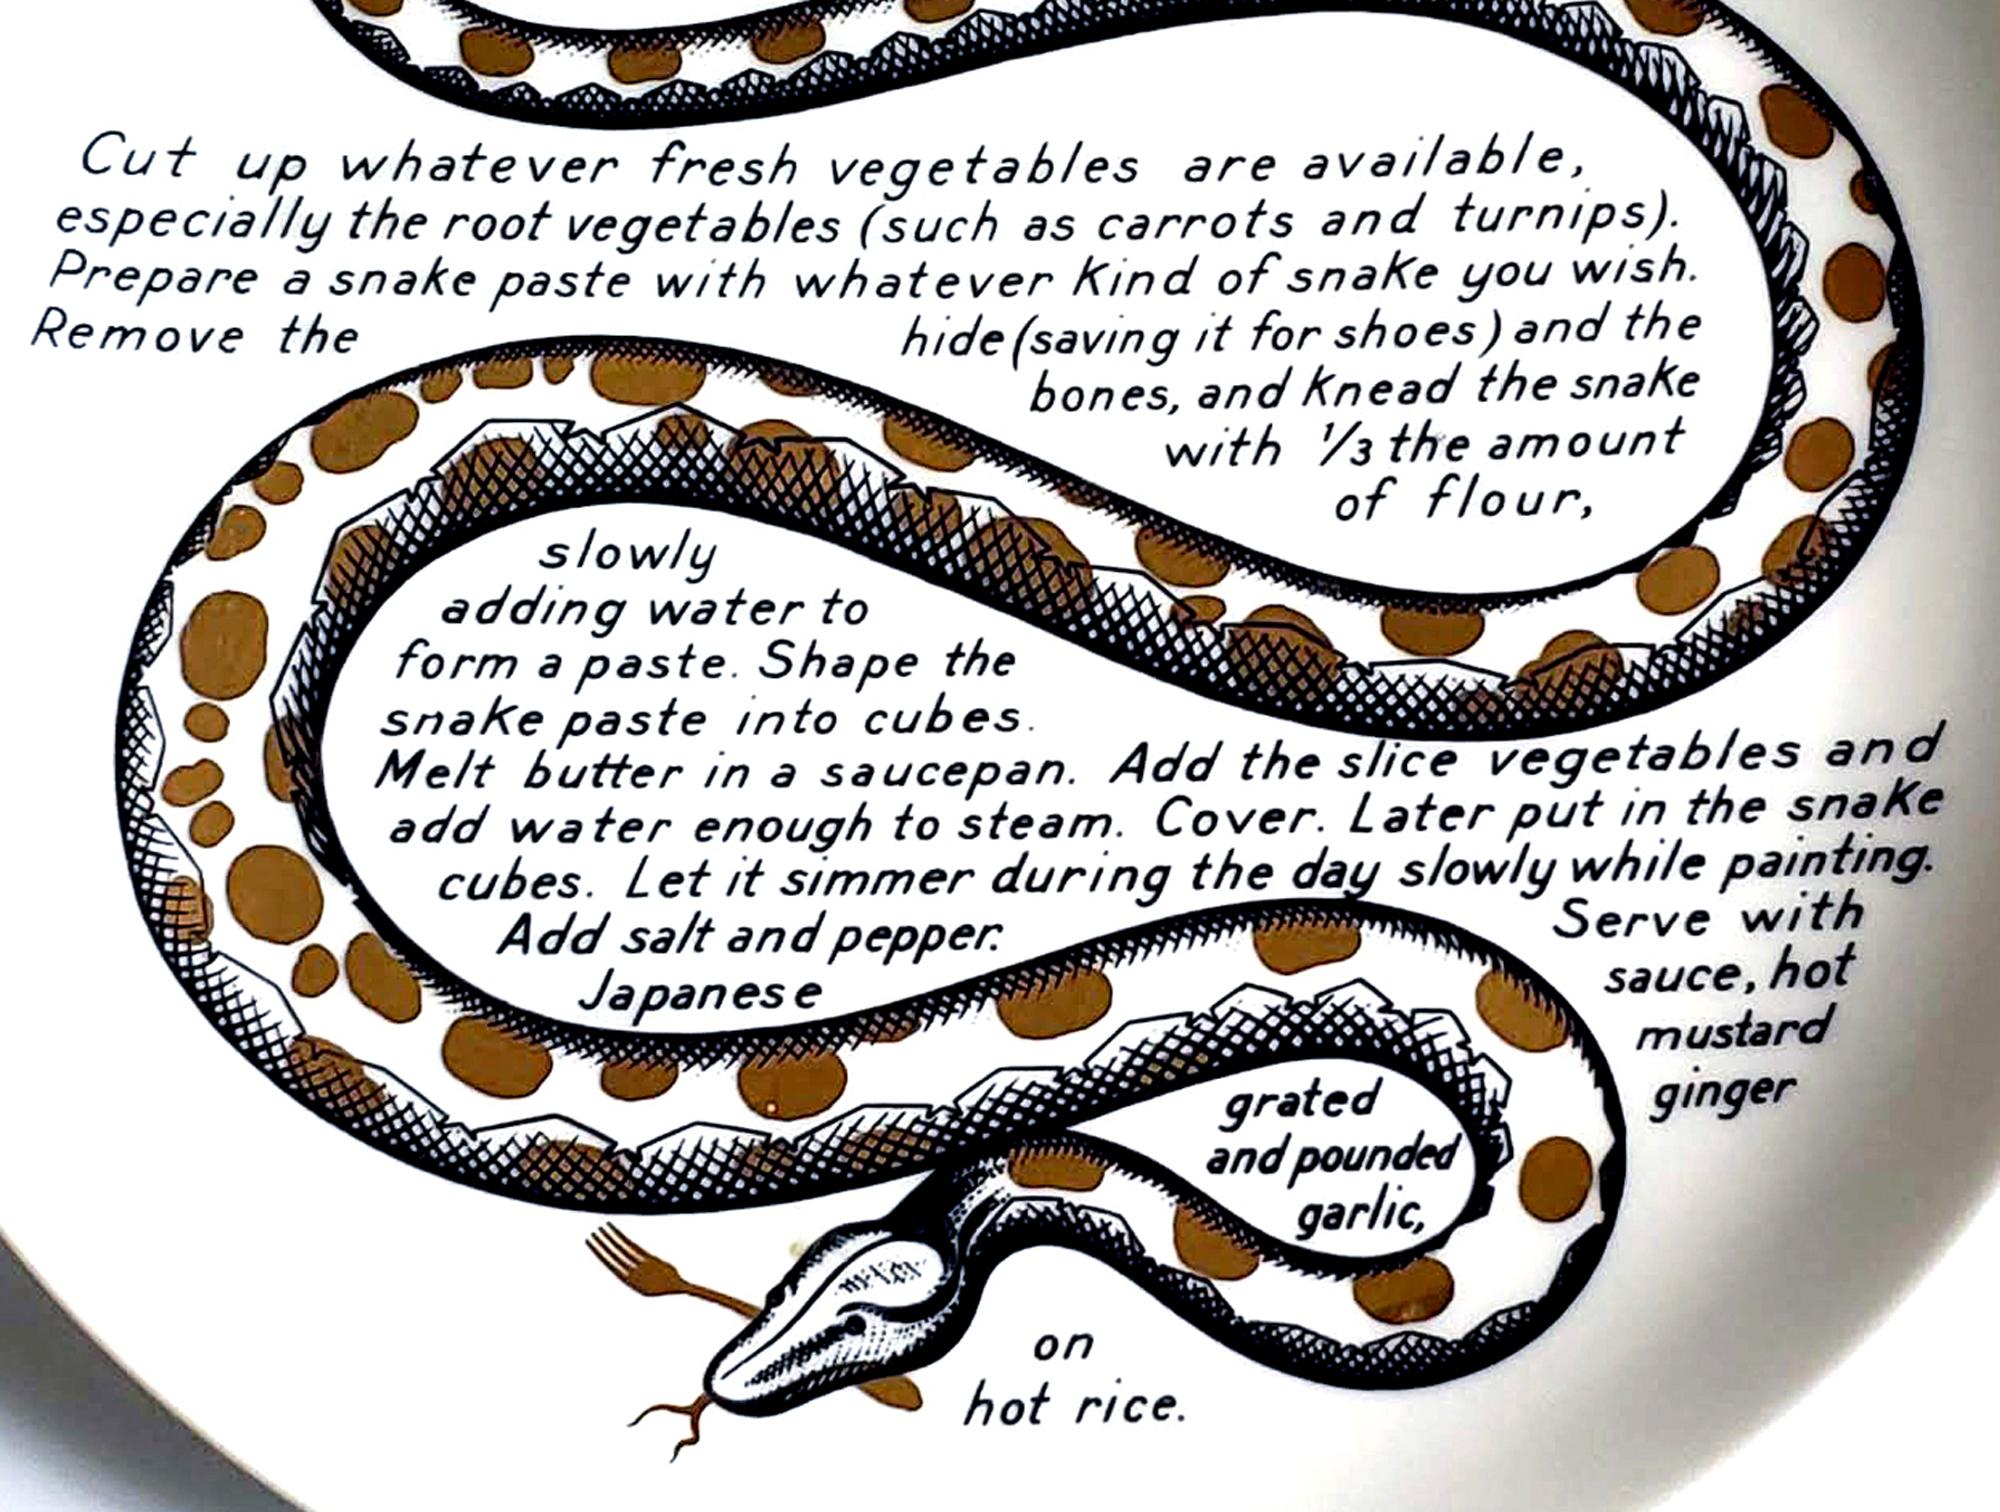 Cut up whatever fresh vegetables are available,
especially the root vegetables (such as carrots and turnips).
Prepare a snake paste with whatever kind of snake you wish.
Remove the hide (saving it for shoes) and the
bones, and knead the snake
with 1/3 the amount
of flour,
slowly
adding water to
form a paste. Shape the
snake paste into cubes.
Melt butter in a saucepan. Add the slice vegetables and
add water enough to steam. Cover. Later put in the snake
cubes. Let it simmer during the day slowly while painting.
Add salt and pepper. Serve with
Japanese sauce, hot
mustard
ginger
grated
and pounded
garlic,
on
hot rice.